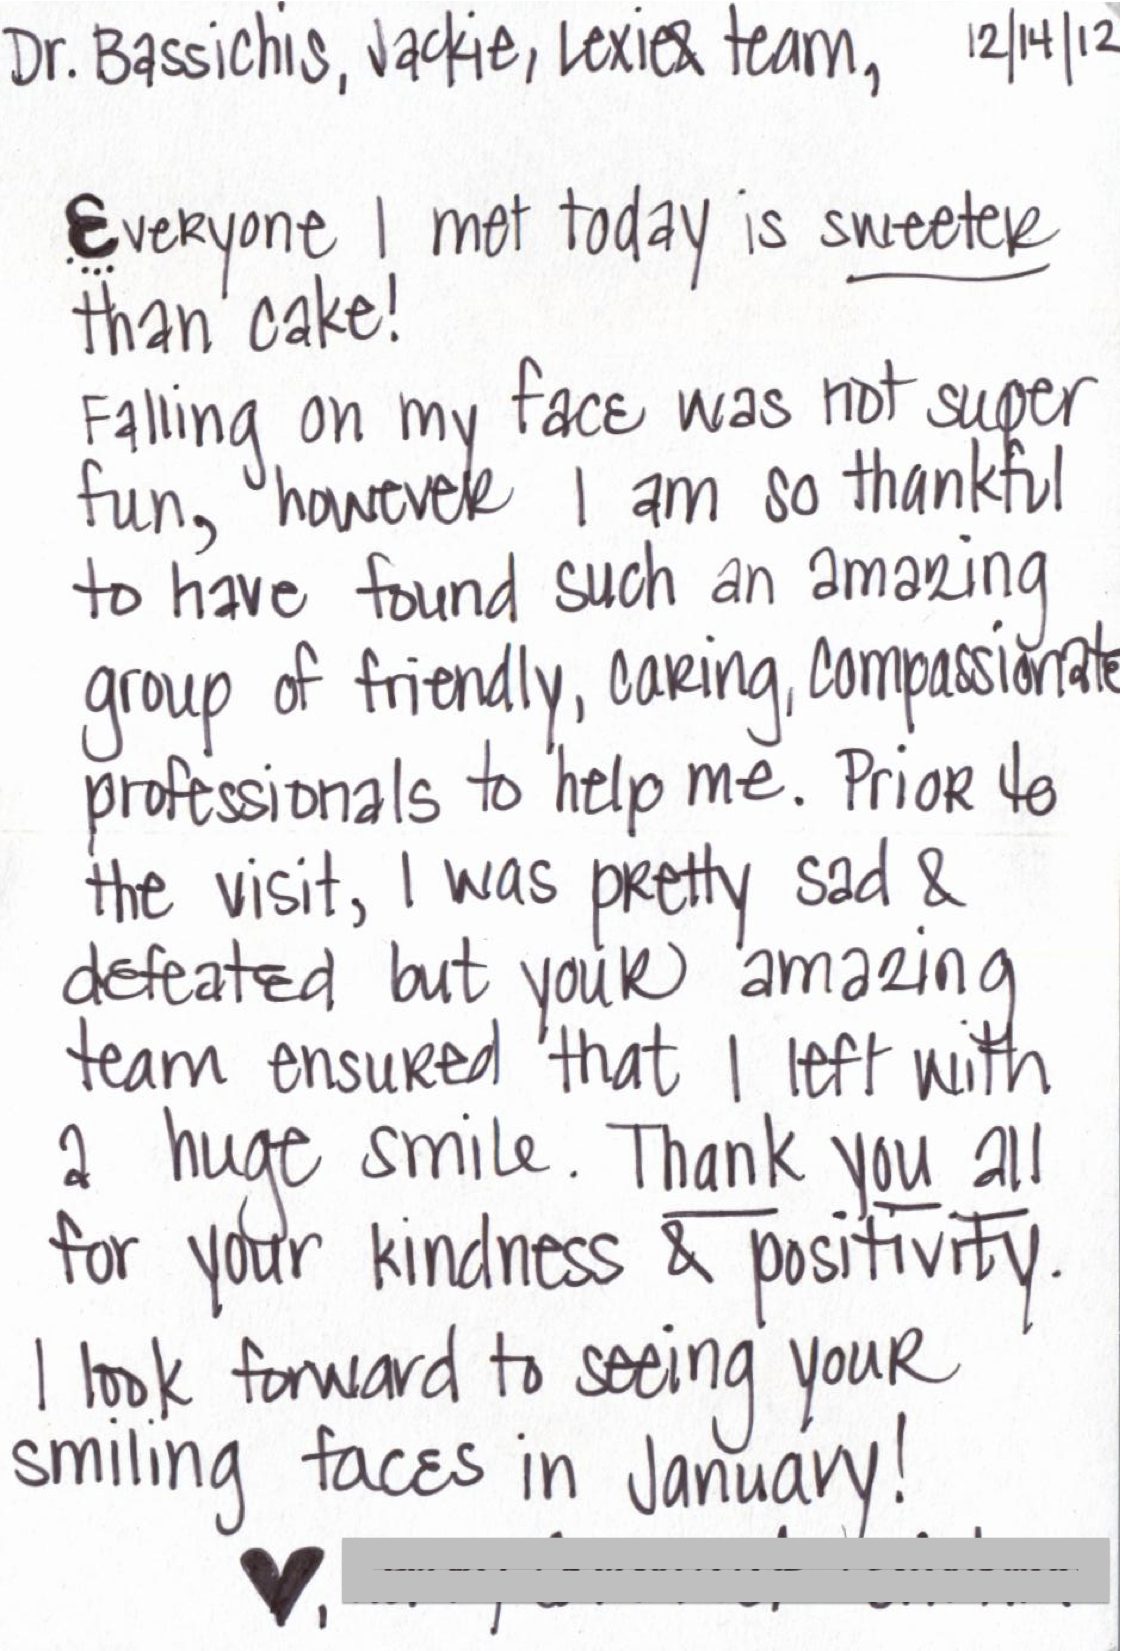 Dr. Bassichis, Jackie, Lexie & team, 12/14/12
Everyone I met today is sweeter
than cake!
Falling on my face was not super
fun, however I am so thankful
to have found such an amazing
group of friendly, caring, compassionate
professionals to help me. Prior to
the visit, I was pretty sad &
defeated but your amazing
team ensured that I left with
a huge smile. Thank you all
for your kindness & positivity.
I look forward to seeing your
smiling faces in January!
♥,